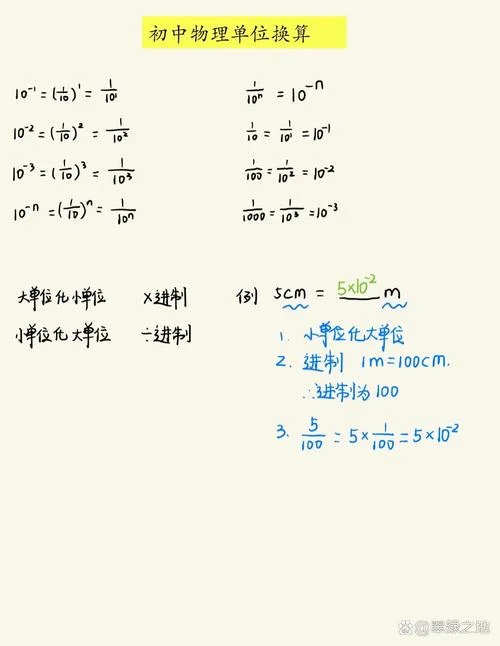 初中物理单位换算
10⁻¹ = (1/10)¹ = 1/10¹
10⁻² = (1/10)² = 1/10²
10⁻³ = (1/10)³ = 1/10³
10⁻ⁿ = (1/10)ⁿ = 1/10ⁿ
1/10ⁿ = 10⁻ⁿ
1/10 = 1/10¹ = 10⁻¹
1/100 = 1/10² = 10⁻²
1/1000 = 1/10³ = 10⁻³
大单位化小单位 ×进制
小单位化大单位 ÷进制
例 5cm = 5×10⁻² m
1. 小单位化大单位
2. 进制 1m=100cm.
∴进制为100
3. 5/100 = 5×1/100 = 5×10⁻²
@翠绿之地